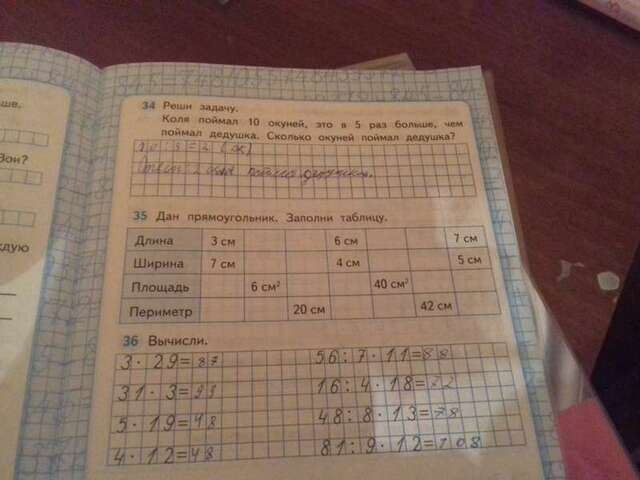 ше.
34 Реши задачу.
Коля поймал 10 окуней, это в 5 раз больше, чем
поймал дедушка. Сколько окуней поймал дедушка?
10 5 = 2 (ок)
Зои?
Ответ 2 поймал
35 Дан прямоугольник. Заполни таблицу.
Длина 3 см 6 см 7 см
ждую
Ширина 7 см 4 см 5 см
Площадь 6 см² 40 см²
Периметр 20 см 42 см
36 Вычисли.
3 · 29 = 87 56 : 7 · 11 = 88
31 · 3 = 93 16 : 4 · 18 = 22
5 · 19 = 98 48 : 8 · 13 = 78
4 · 12 = 48 81 : 9 · 12 = 108